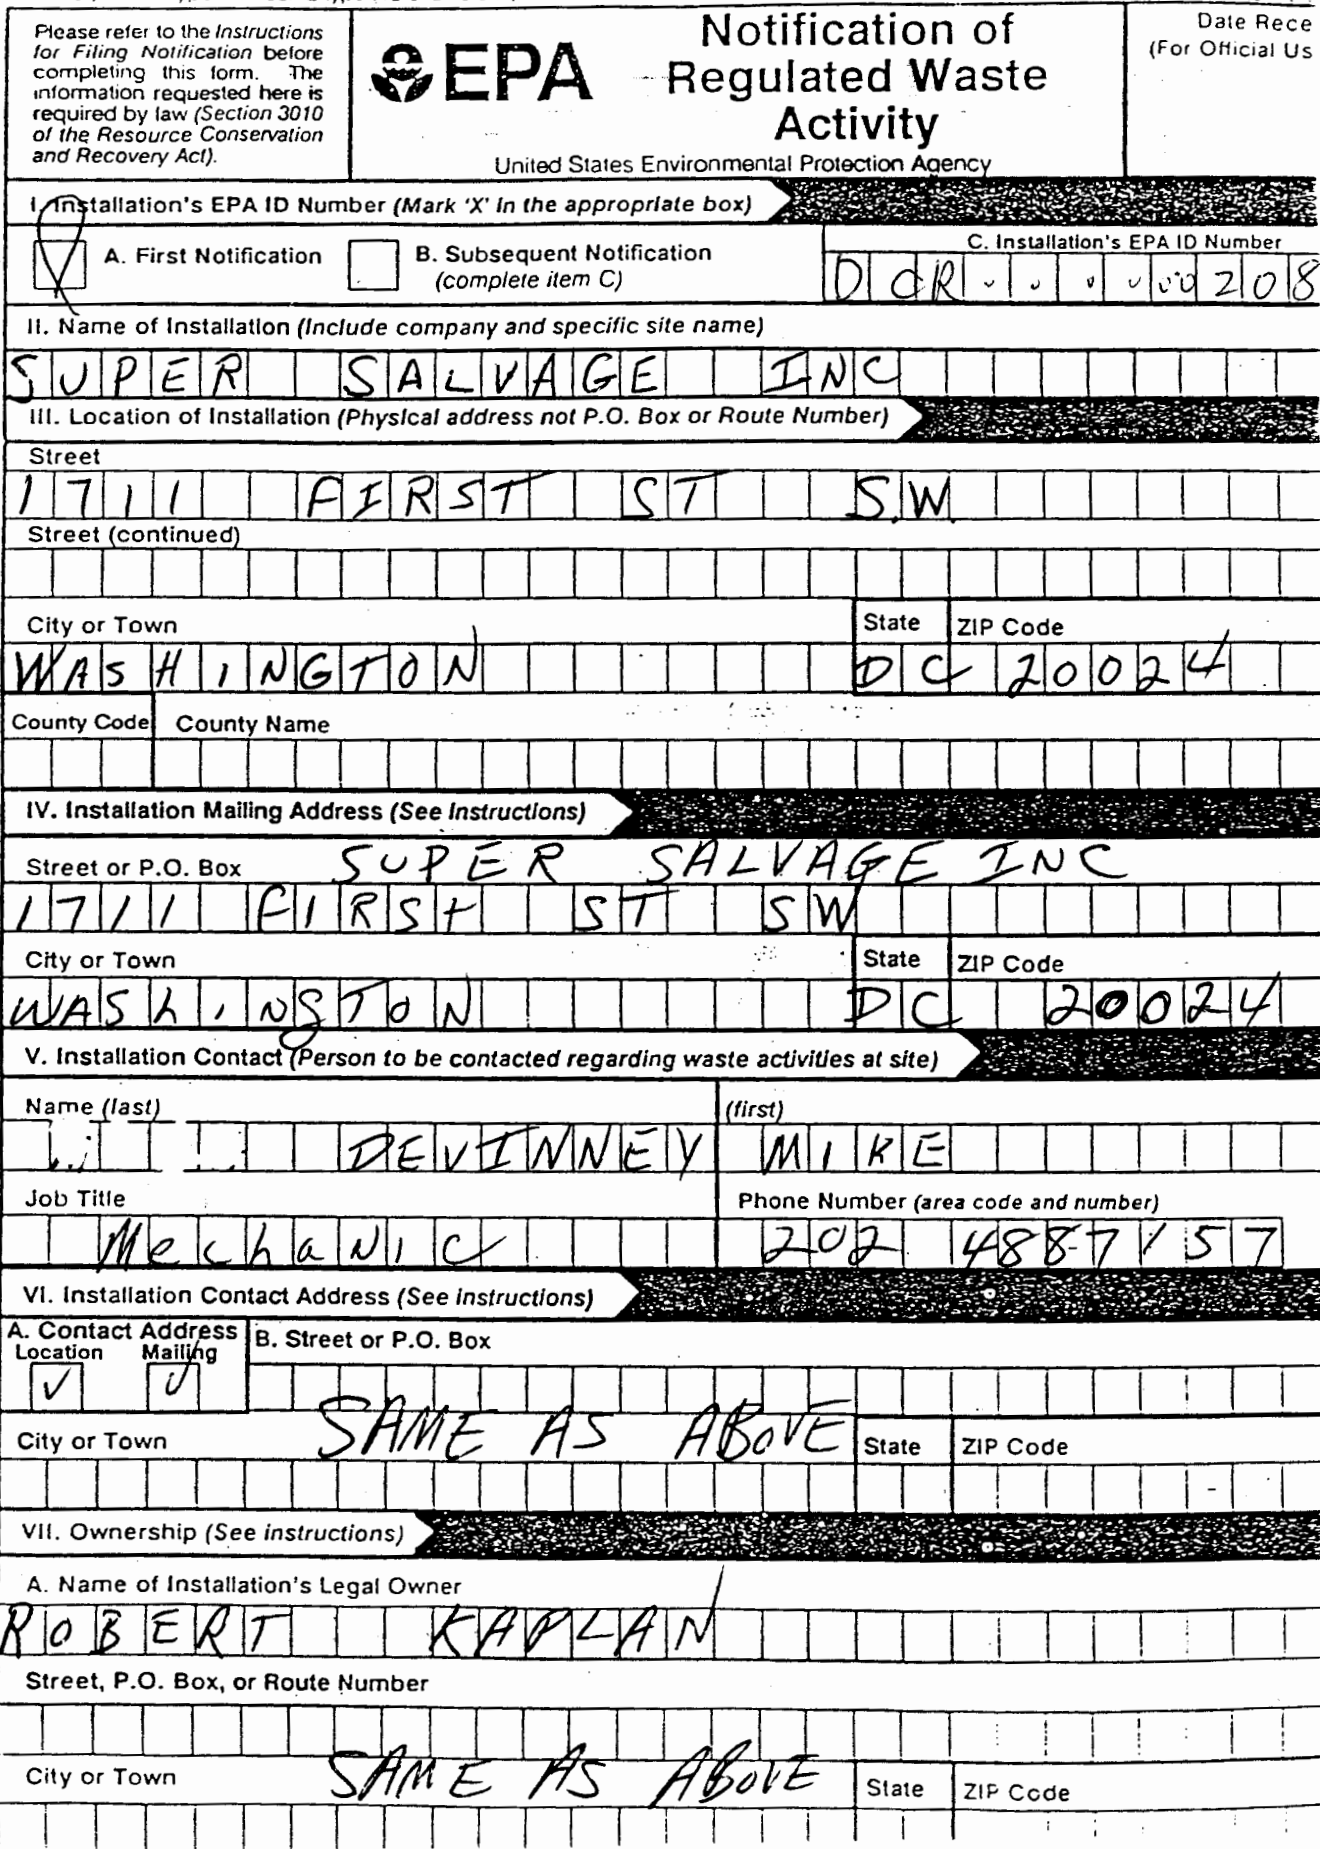 Please refer to the Instructions
for Filing Notification before
completing this form. The
information requested here is
required by law (Section 3010
of the Resource Conservation
and Recovery Act).
EPA
Notification of
Regulated Waste
Activity
United States Environmental Protection Agency
Date Rece
(For Official Us
I. Installation's EPA ID Number (Mark 'X' in the appropriate box)
A. First Notification
B. Subsequent Notification
(complete item C)
C. Installation's EPA ID Number
DCR 208
II. Name of Installation (Include company and specific site name)
SUPER SALVAGE INC
III. Location of Installation (Physical address not P.O. Box or Route Number)
Street
1711 FIRST ST S.W.
Street (continued)
City or Town State ZIP Code
WASHINGTON DC 20024
County Code County Name
IV. Installation Mailing Address (See Instructions)
Street or P.O. Box SUPER SALVAGE INC
1711 FIRST ST SW
City or Town State ZIP Code
WAShINGTON DC 20024
V. Installation Contact (Person to be contacted regarding waste activities at site)
Name (last) (first)
DEVINNEY MIKE
Job Title Phone Number (area code and number)
MechaNiC 202 488-7157
VI. Installation Contact Address (See instructions)
A. Contact Address B. Street or P.O. Box
Location Mailing
SAME AS ABOVE
City or Town State ZIP Code
VII. Ownership (See instructions)
A. Name of Installation's Legal Owner
ROBERT KAPLAN
Street, P.O. Box, or Route Number
SAME AS ABOVE
City or Town State ZIP Code